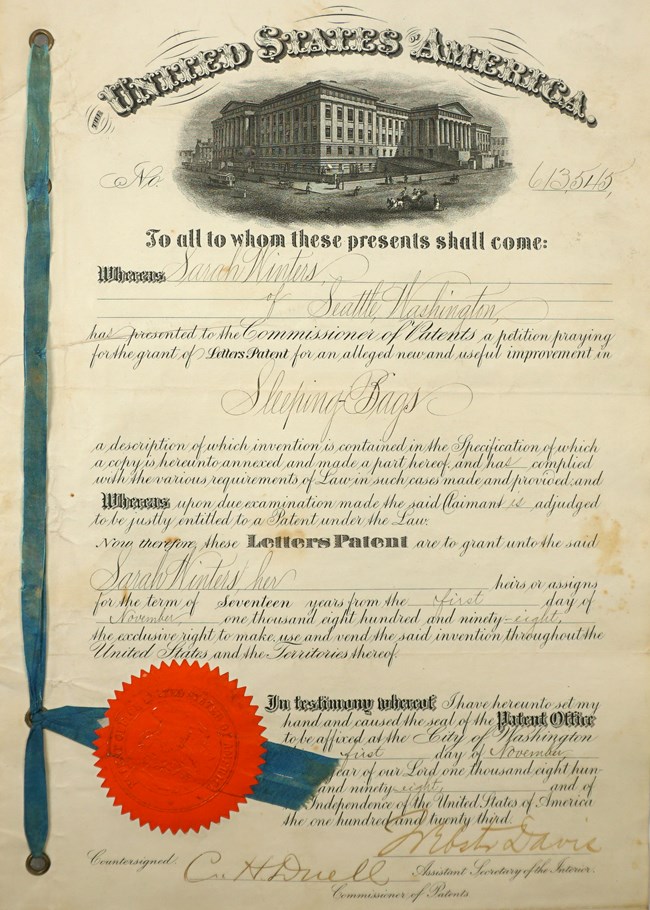 THE UNITED STATES OF AMERICA.
No. 613,545,
To all to whom these presents shall come:
Whereas Sarah Winters,
of Seattle, Washington,
has presented to the Commissioner of Patents a petition praying
for the grant of Letters Patent for an alleged new and useful improvement in
Sleeping-Bags
a description of which invention is contained in the Specification of which
a copy is hereunto annexed and made a part hereof, and has complied
with the various requirements of Law in such cases made and provided, and
Whereas upon due examination made the said Claimant is adjudged
to be justly entitled to a Patent under the Law.
Now therefore these Letters Patent are to grant unto the said
Sarah Winters, her heirs or assigns
for the term of Seventeen years from the first day of
November one thousand eight hundred and ninety-eight,
the exclusive right to make, use and vend the said invention throughout the
United States and the Territories thereof.
In testimony whereof, I have hereunto set my
hand and caused the seal of the Patent Office
to be affixed at the City of Washington
first day of November,
year of our Lord one thousand eight hun-
and ninety-eight, and of
Independence of the United States of America
the one hundred and twenty third.
Webster Davis
Countersigned. C. H. Duell Assistant Secretary of the Interior.
Commissioner of Patents